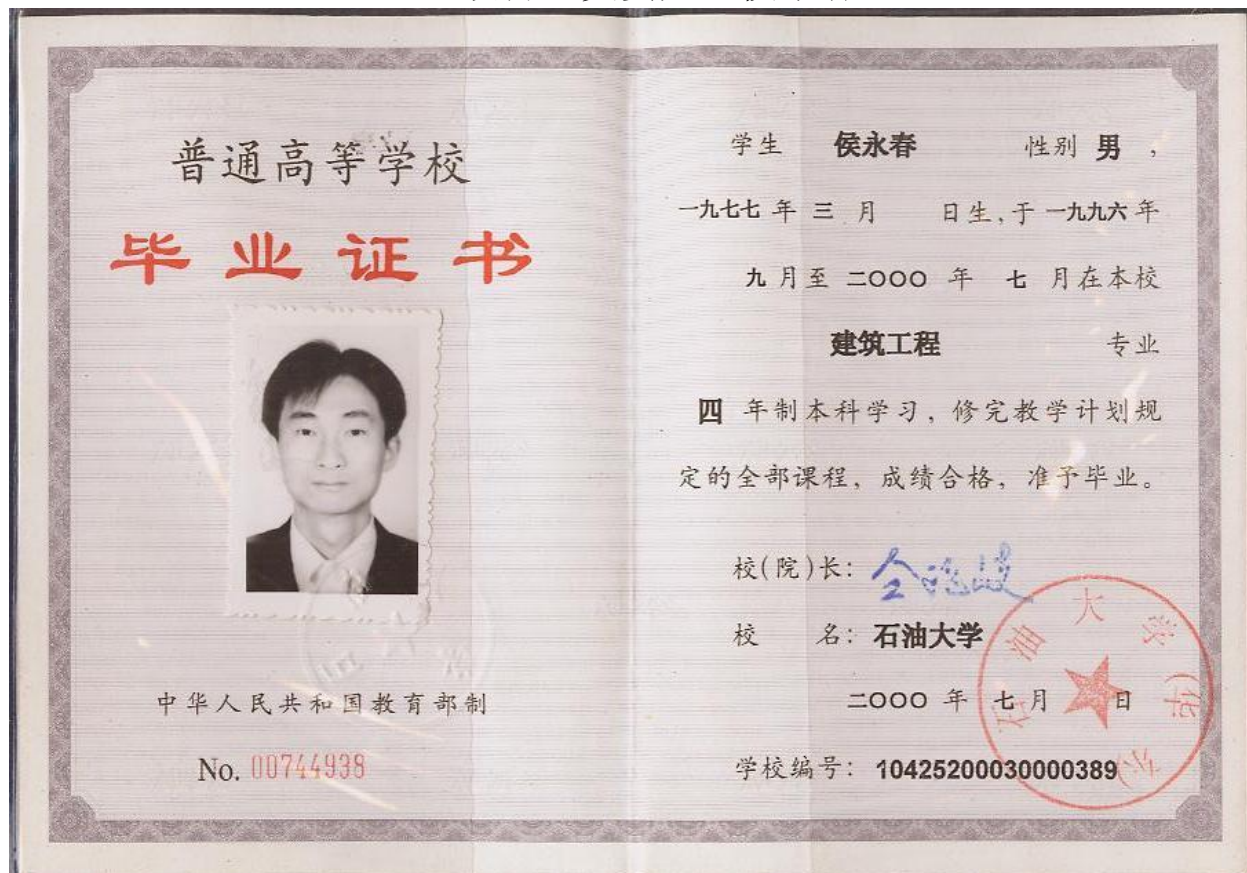 普通高等学校
毕业证书
中华人民共和国教育部制
No. 00744938
学生 侯永春 性别 男 ,
一九七七 年 三 月 日生,于 一九九六 年
九 月至 二〇〇〇 年 七 月在本校
建筑工程 专业
四 年制本科学习, 修完教学计划规
定的全部课程, 成绩合格, 准予毕业。
校(院)长:
校 名: 石油大学
二〇〇〇 年 七月 日
学校编号: 10425200030000389
石油大学(华东)